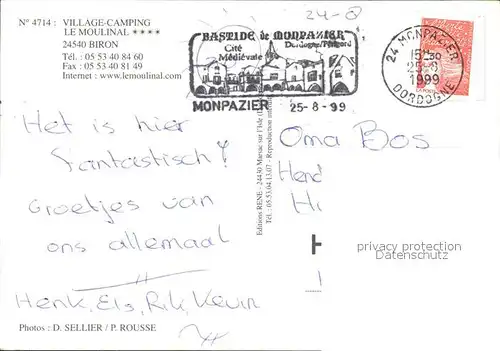 24-8
N° 4714 : VILLAGE-CAMPING
LE MOULINAL ****
24540 BIRON
Tél. : 05 53 40 84 60
Fax : 05 53 40 81 49
Internet : www.lemoulinal.com
BASTIDE de MONPAZIER
Cité Médiévale
Dordogne/Périgord
MONPAZIER 25-8-99
24 MONPAZIER
1999
DORDOGNE
LA POSTE
Het is hier
fantastisch!
Groetjes van
ons allemaal
Henk, Els, Rik, Kevin
Photos : D. SELLIER / P. ROUSSE
Editions RENE - 24430 Marsac sur l'Isle
Tél. : 05.53.04.13.07 - Reproduction
Oma Bos
privacy protection
Datenschutz